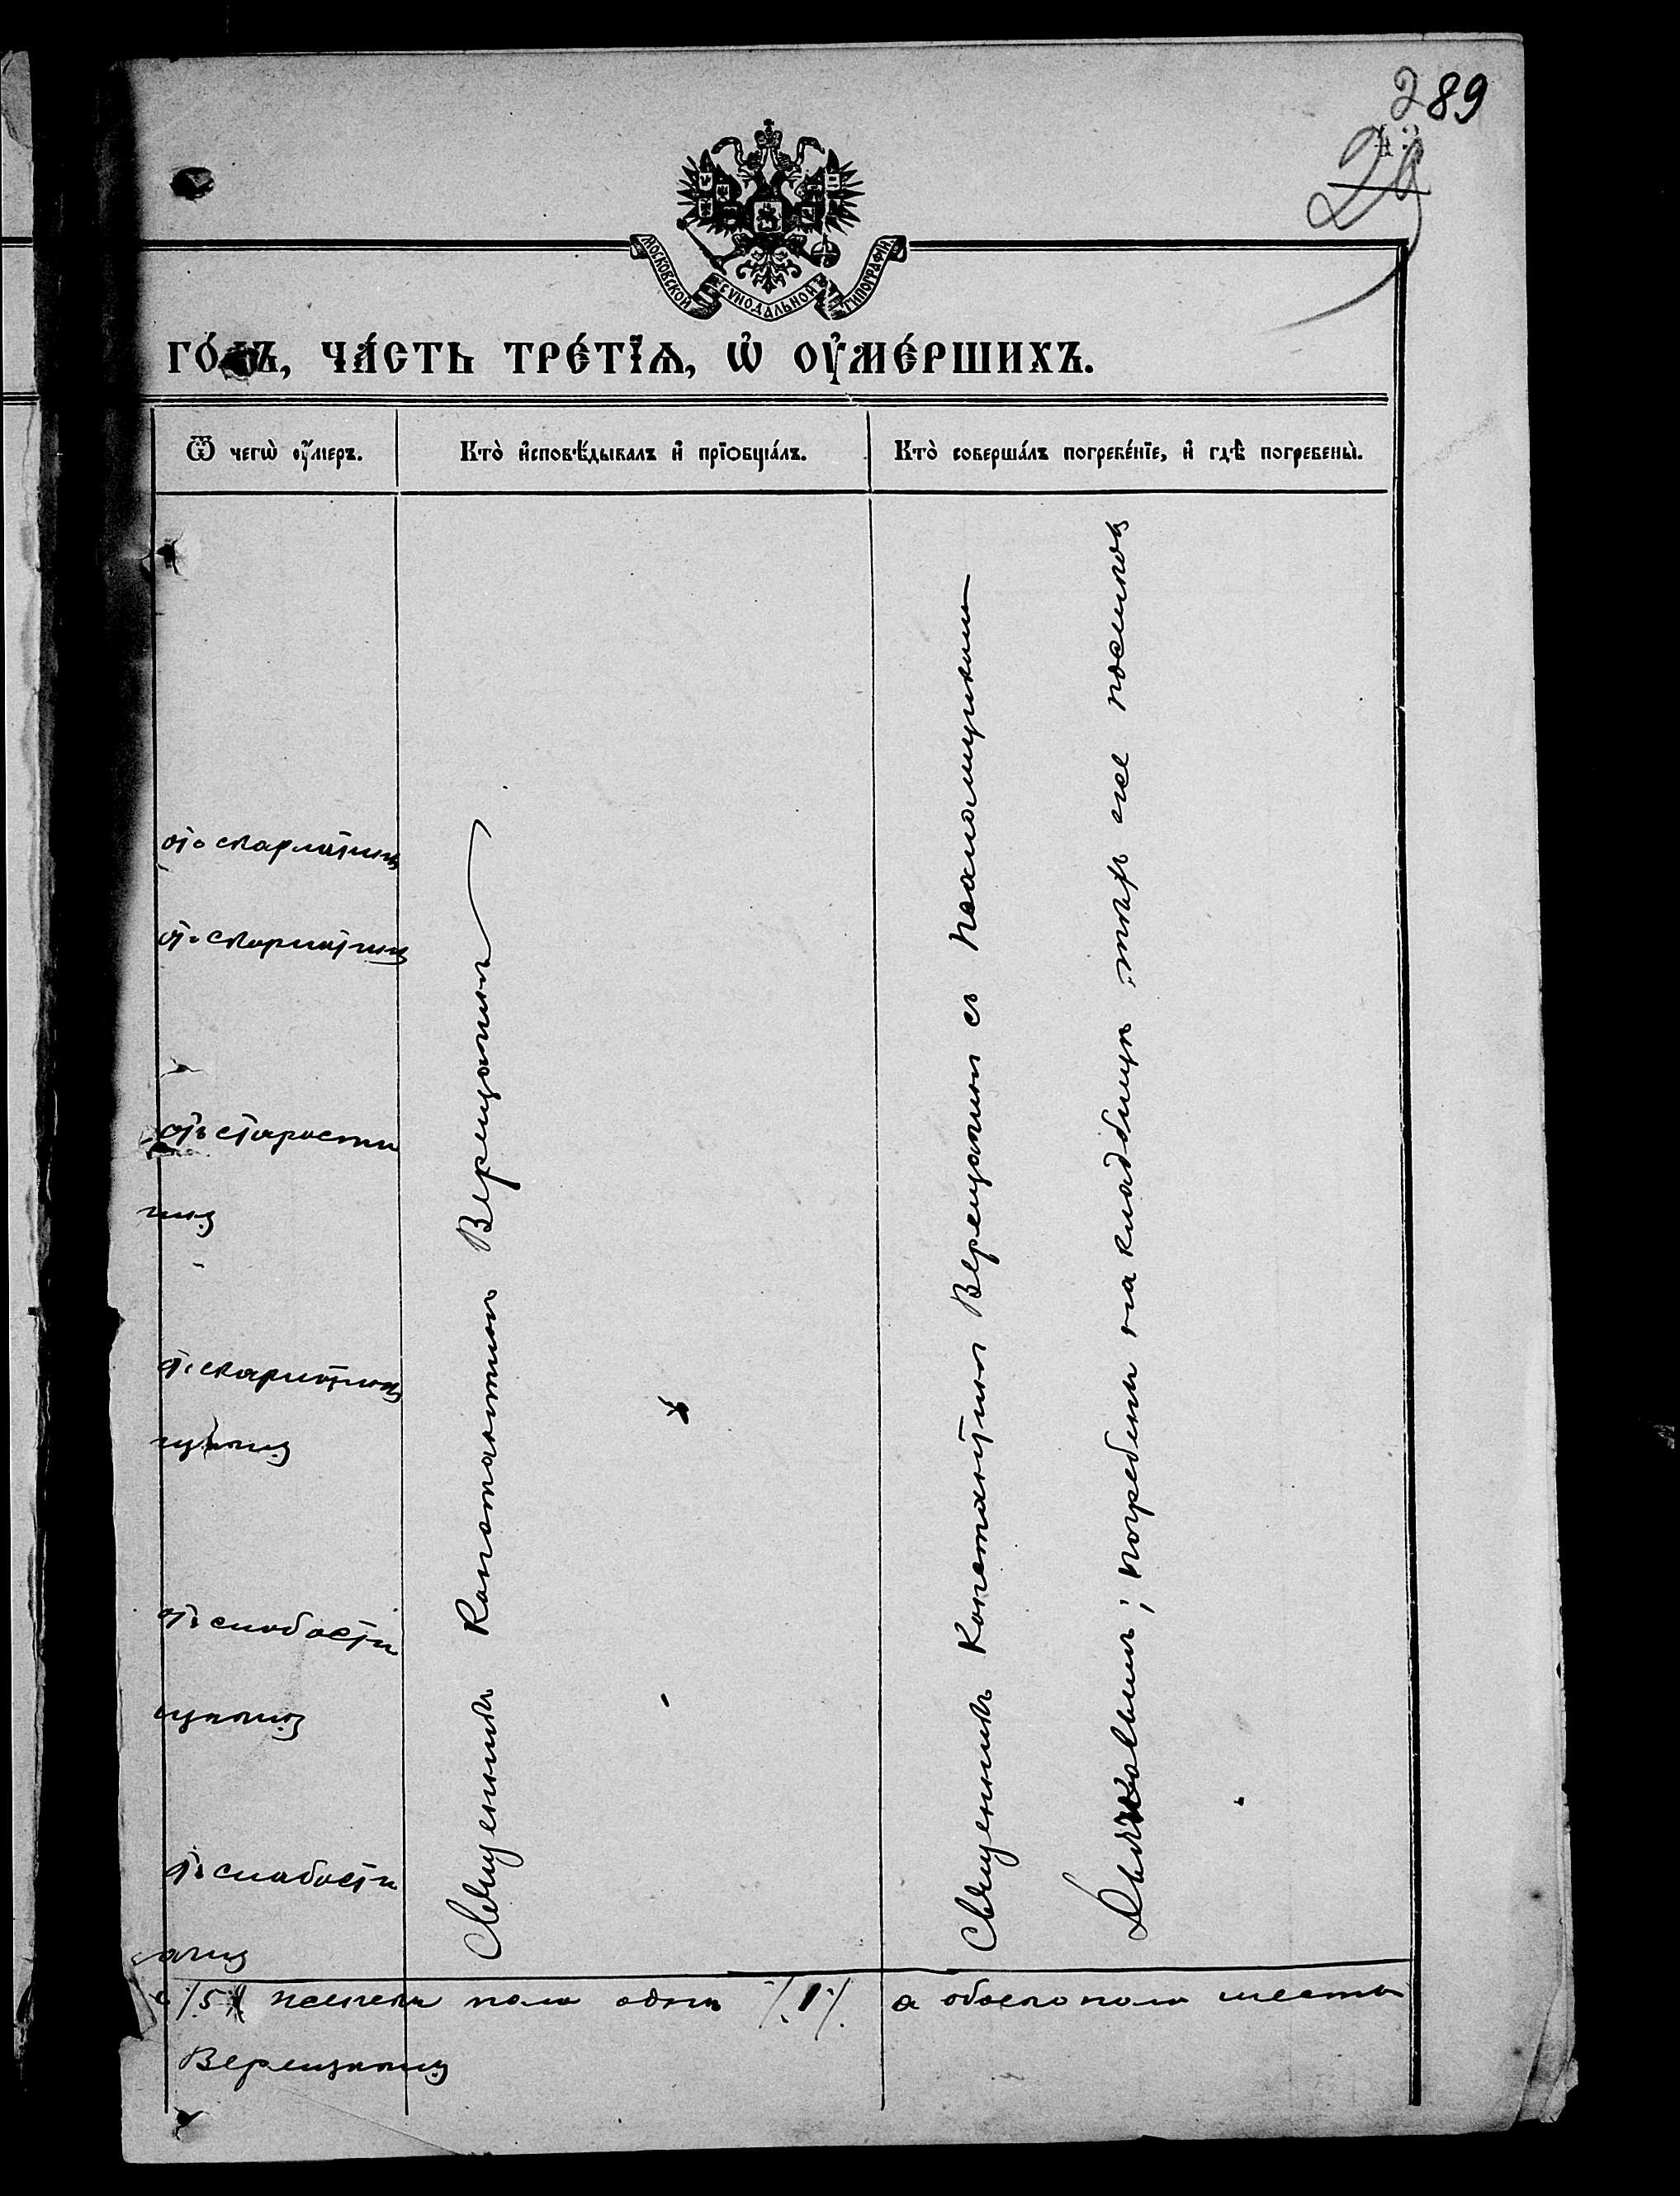 289
МОСКОВСКОЙ СѴНОДАЛЬНОЙ ТИПОГРАФІИ
ГО́ДЪ, ЧА́СТЬ ТРЕ́ТЇѦ, Ѡ҆ ОУ҆МЕ́РШИХЪ.
Ѿ чегѡ̀ оу҆́меръ.
Кто̀ и҆сповѣ́дывалъ и҆ прїѡбща́лъ.
Кто̀ соверша́лъ погребе́нїе, и҆ гдѣ̀ погребены̀.
отъ скарлатины
отъ скарлатины
отъ старости
отъ скарлатины
отъ слабости
отъ слабости
Священникъ Константинъ Верещагинъ
Священникъ Константинъ Верещагинъ съ псаломщикомъ
погребены на кладбищѣ того же поселка
/5/ женска пола одна /1/. а обоего пола шесть
Верещагинъ